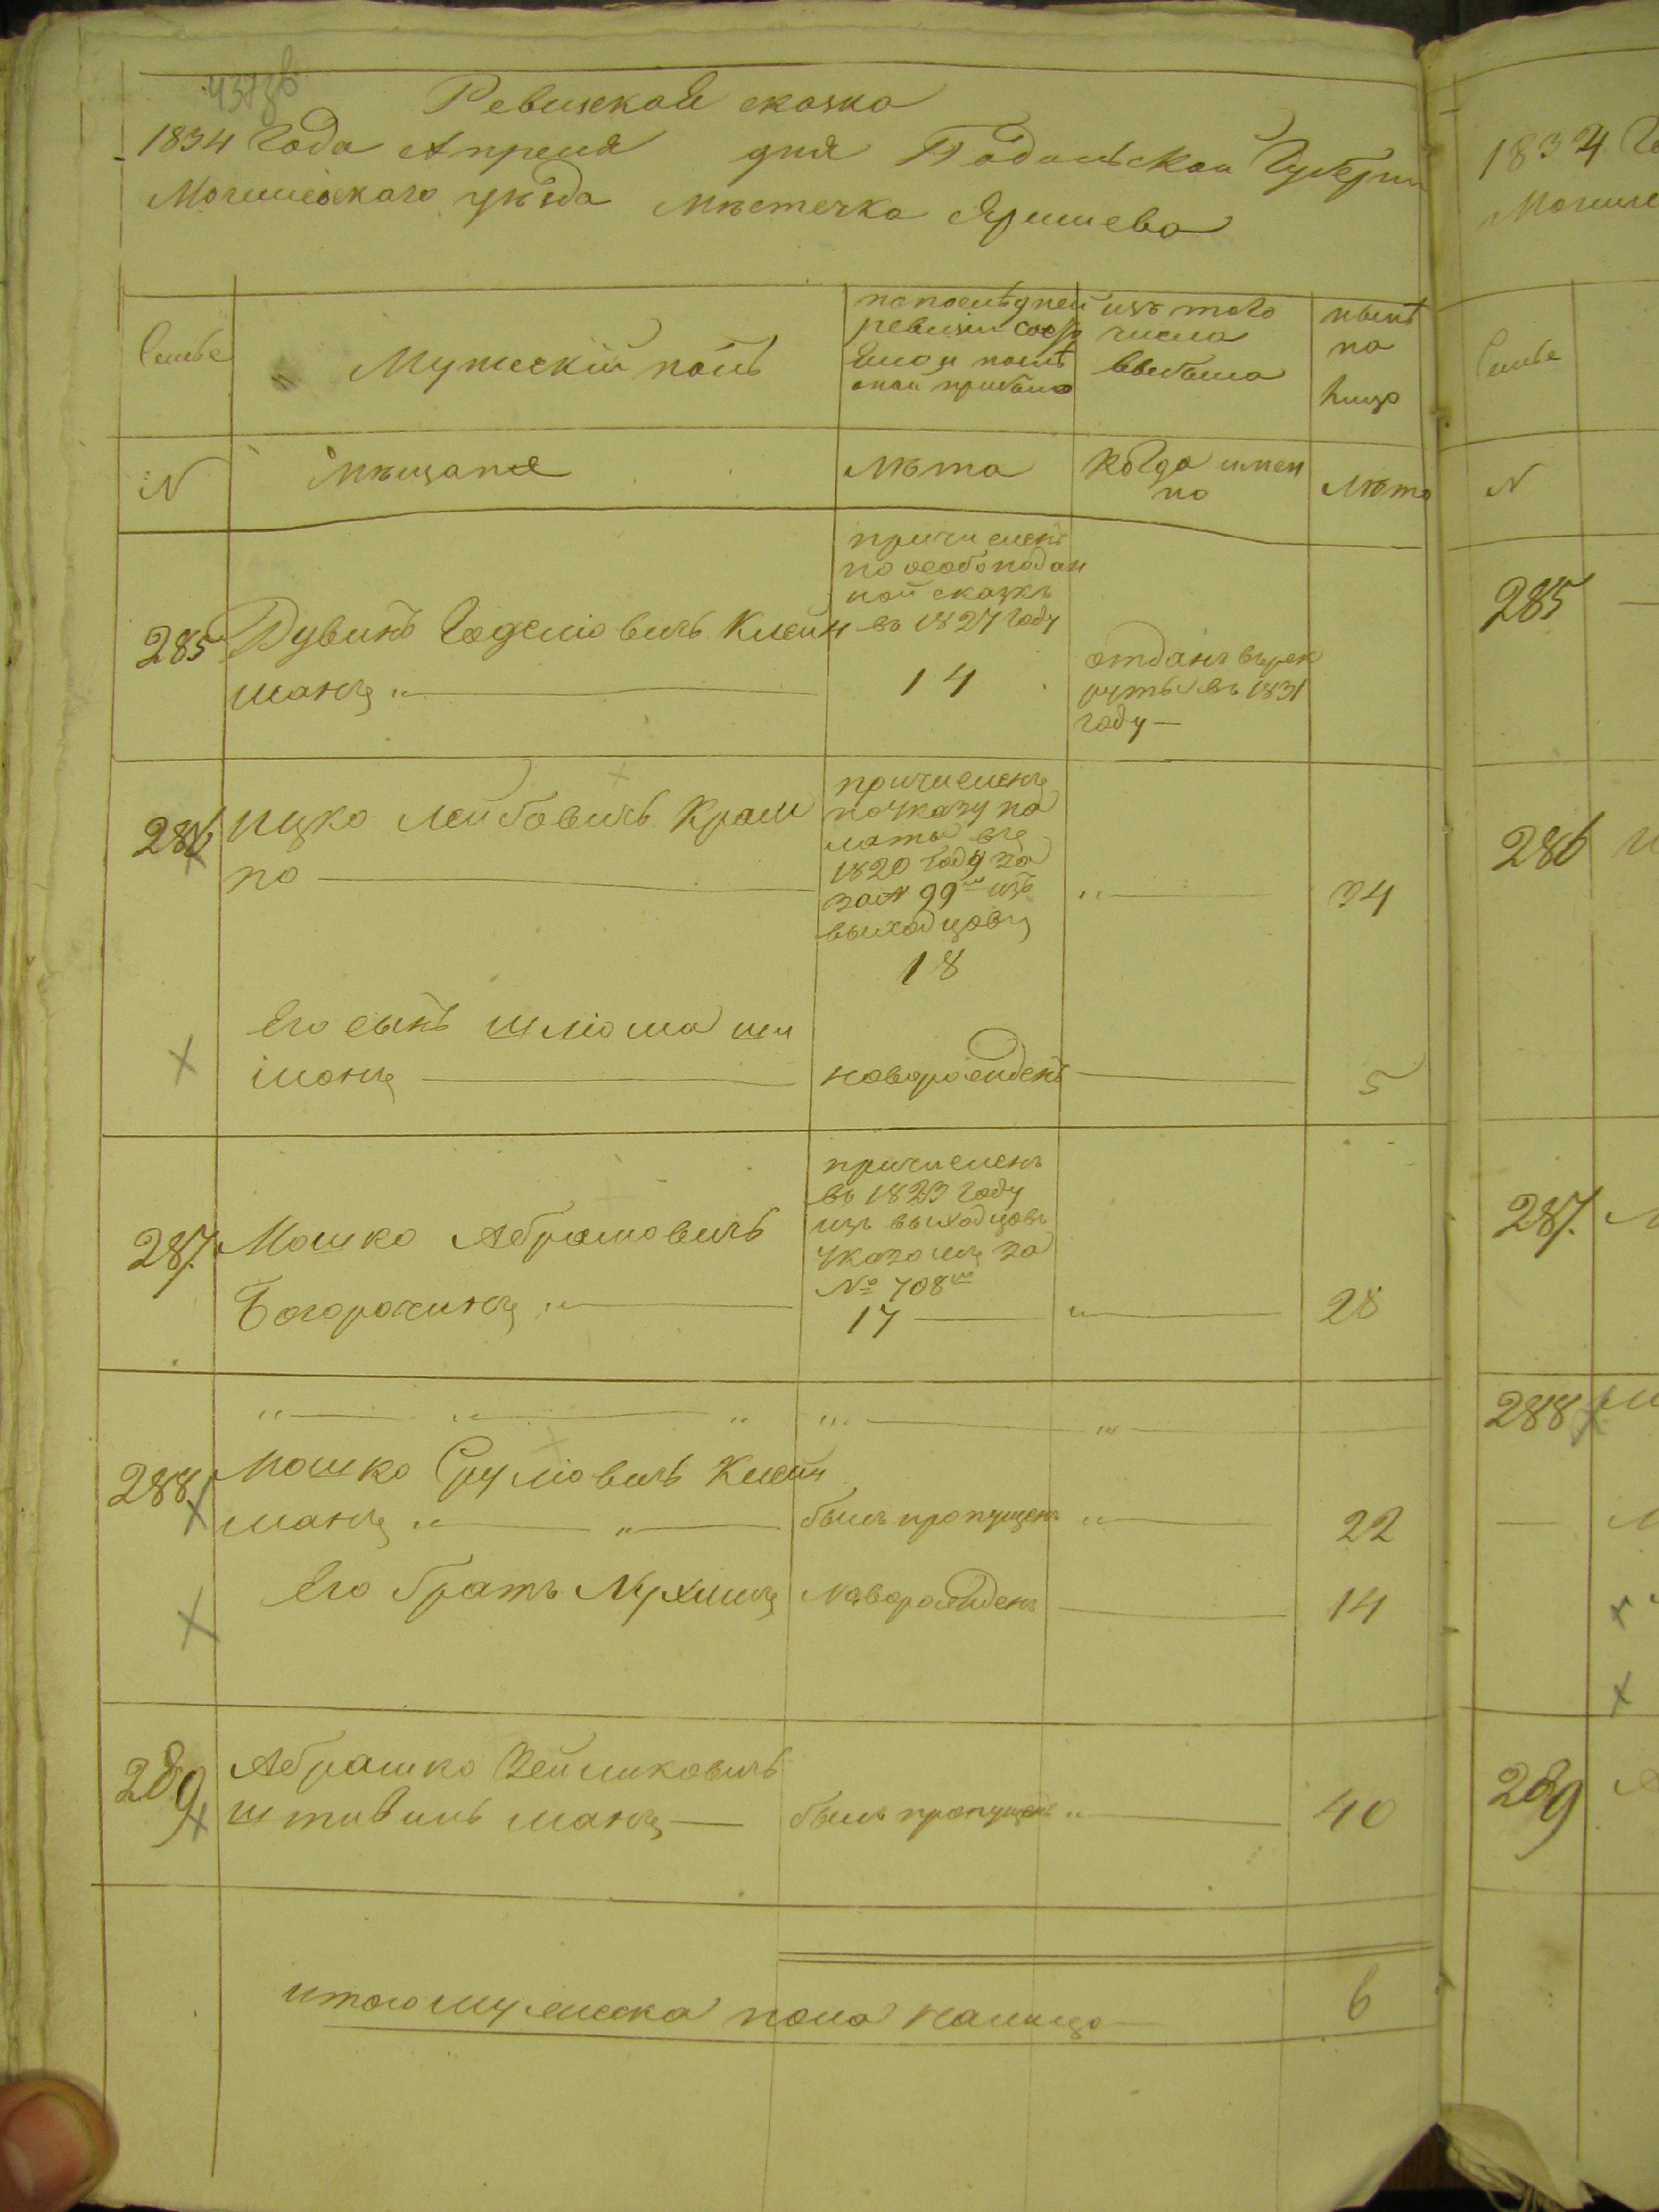 Ревизская сказка
1834 года Апреля дня Подольской Губерни
Могилевского уѣзда мѣстечка Яришева
Семье
Мужескій полъ
по послѣдней
ревизіи состо
яло и послѣ
оной прибыло
изъ того
числа
выбыло
нынѣ
на
лицо
N
мѣщане
Лѣта
Когда имен
но
Лѣта
285
Дувинъ Годелiовичъ Клейн
манъ
причисленъ
по особо подан
ной сказкѣ
въ 1827 году
14
отданъ въ рек
руты въ 1831
году
286
Ицко Лейбовичъ Крали
по
причисленъ
по указу па
латы въ
1820 году за
за N 99м изъ
выходцовъ
18
34
Его сынъ Шліома
манъ
новорожденъ
5
287.
Мошко Абрамовичъ
Богорочинъ
причисленъ
въ 1823 году
изъ выходцовъ
указомъ за
№ 708м
17
28
288
Мошко Сруліовичъ Клейн
манъ
былъ пропущенъ
22
Его братъ Нухимъ
Новорожденъ
14
289
Абрашко Зейликовичъ
Штивиль манъ
былъ пропущенъ
40
итого мужеска пола налицо
6
1834 Го
Могиле
Семье
N
285
286
287.
288
289